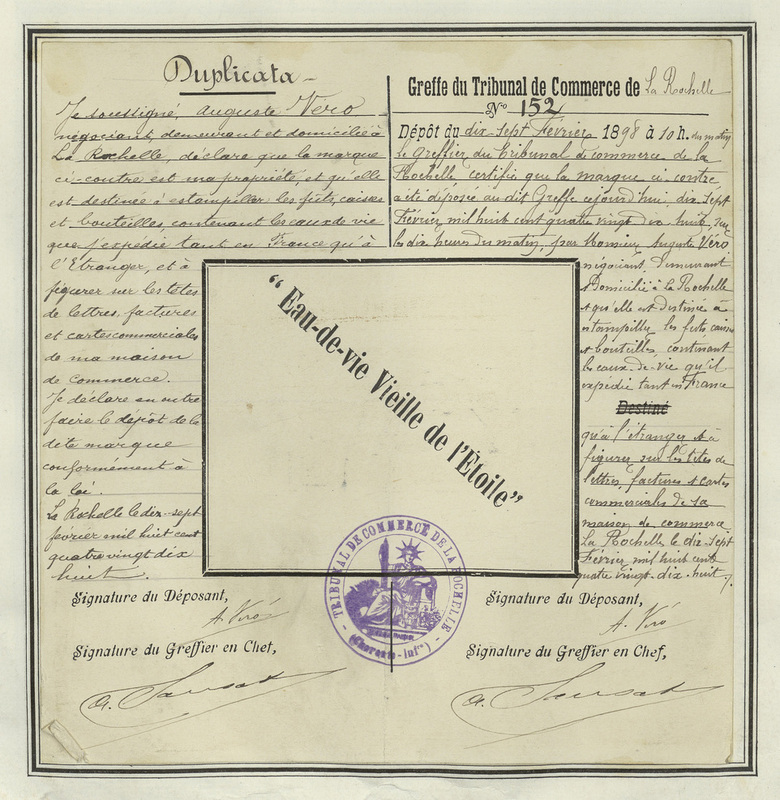 Duplicata
Je soussigné, Auguste Véro
négociant, demeurant et domicilié à
La Rochelle, déclare que la marque
ci-contre est ma propriété, et qu'elle
est destinée à estampiller les fûts, caisses
et bouteilles, contenant les eaux de vie
que j'expédie tant en France qu'à
l'Etranger, et à
figurer sur les têtes
de lettres, factures
et cartes commerciales
de ma maison
de commerce.
Je déclare en outre
faire le dépôt de la
dite marque
conformément à
la loi.
La Rochelle le dix-sept
février mil huit cent
quatre vingt dix
huit.
Signature du Déposant,
A. Véro
Signature du Greffier en Chef,
Greffe du Tribunal de Commerce de La Rochelle
N° 152
Dépôt du dix sept Février 1898 à 10 h. du matin
Le Greffier du Tribunal de commerce de la
Rochelle certifie que la marque ci contre
a été déposée au dit Greffe cejourd'hui, dix sept
Février mil huit cent quatre vingt dix huit, sur
les dix heures du matin, par Monsieur Auguste Véro
négociant, demeurant
et Domicilié à La Rochelle
et qu'elle est destinée à
estampiller les fûts, caisses
et bouteilles, contenant
les eaux-de-vie qu'il
expédie tant en France
Destiné
qu'à l'étranger et à
figurer sur les têtes de
lettres, factures et cartes
commerciales de sa
maison de commerce
La Rochelle le dix sept
Février mil huit cent
quatre vingt dix huit.
Signature du Déposant,
A. Véro
Signature du Greffier en Chef,
"Eau-de-vie Vieille de l'Étoile"
TRIBUNAL DE COMMERCE DE LA ROCHELLE
(Charente-Infre)